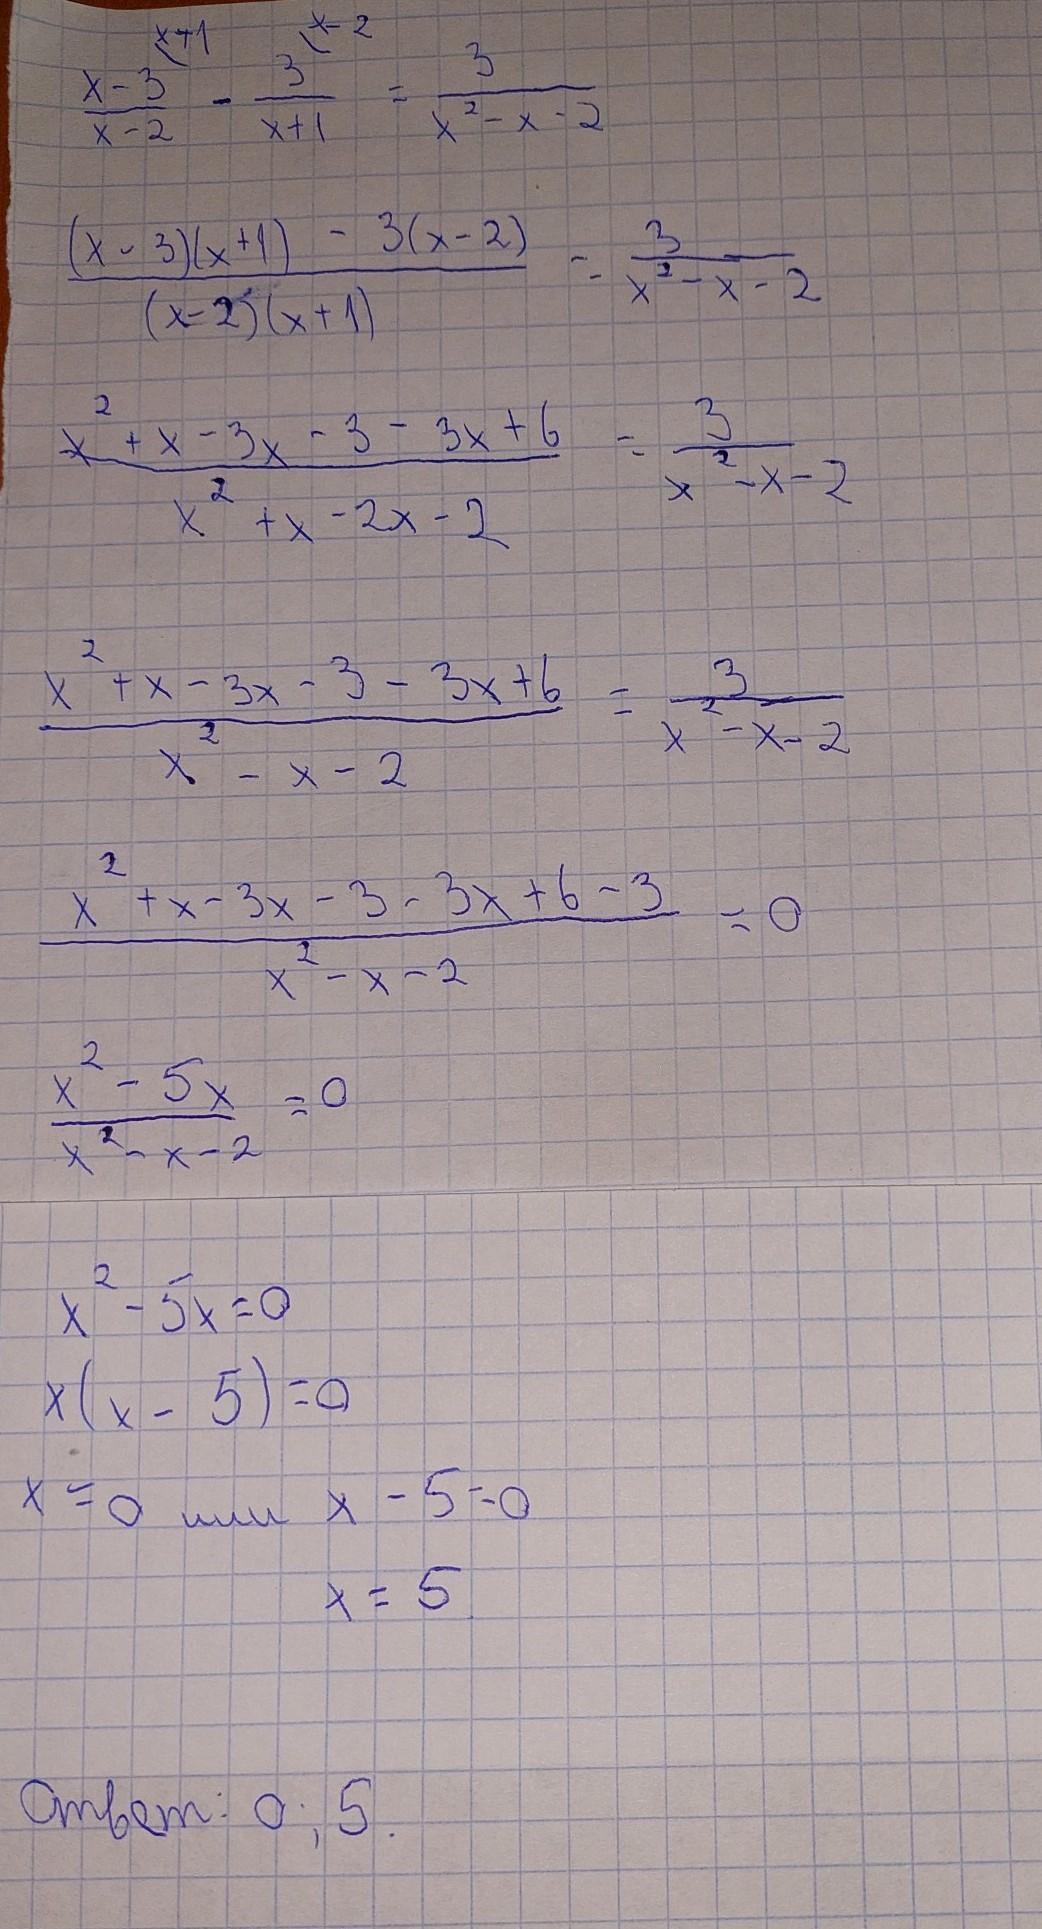 x+1 x-2
(x-3)/(x-2) - 3/(x+1) = 3/(x²-x-2)
((x-3)(x+1) - 3(x-2))/((x-2)(x+1)) = 3/(x²-x-2)
(x²+x-3x-3-3x+6)/(x²+x-2x-2) = 3/(x²-x-2)
(x²+x-3x-3-3x+6)/(x²-x-2) = 3/(x²-x-2)
(x²+x-3x-3-3x+6-3)/(x²-x-2) = 0
(x²-5x)/(x²-x-2) = 0
x²-5x=0
x(x-5)=0
x=0 или x-5=0
x=5
Ответ: 0; 5.